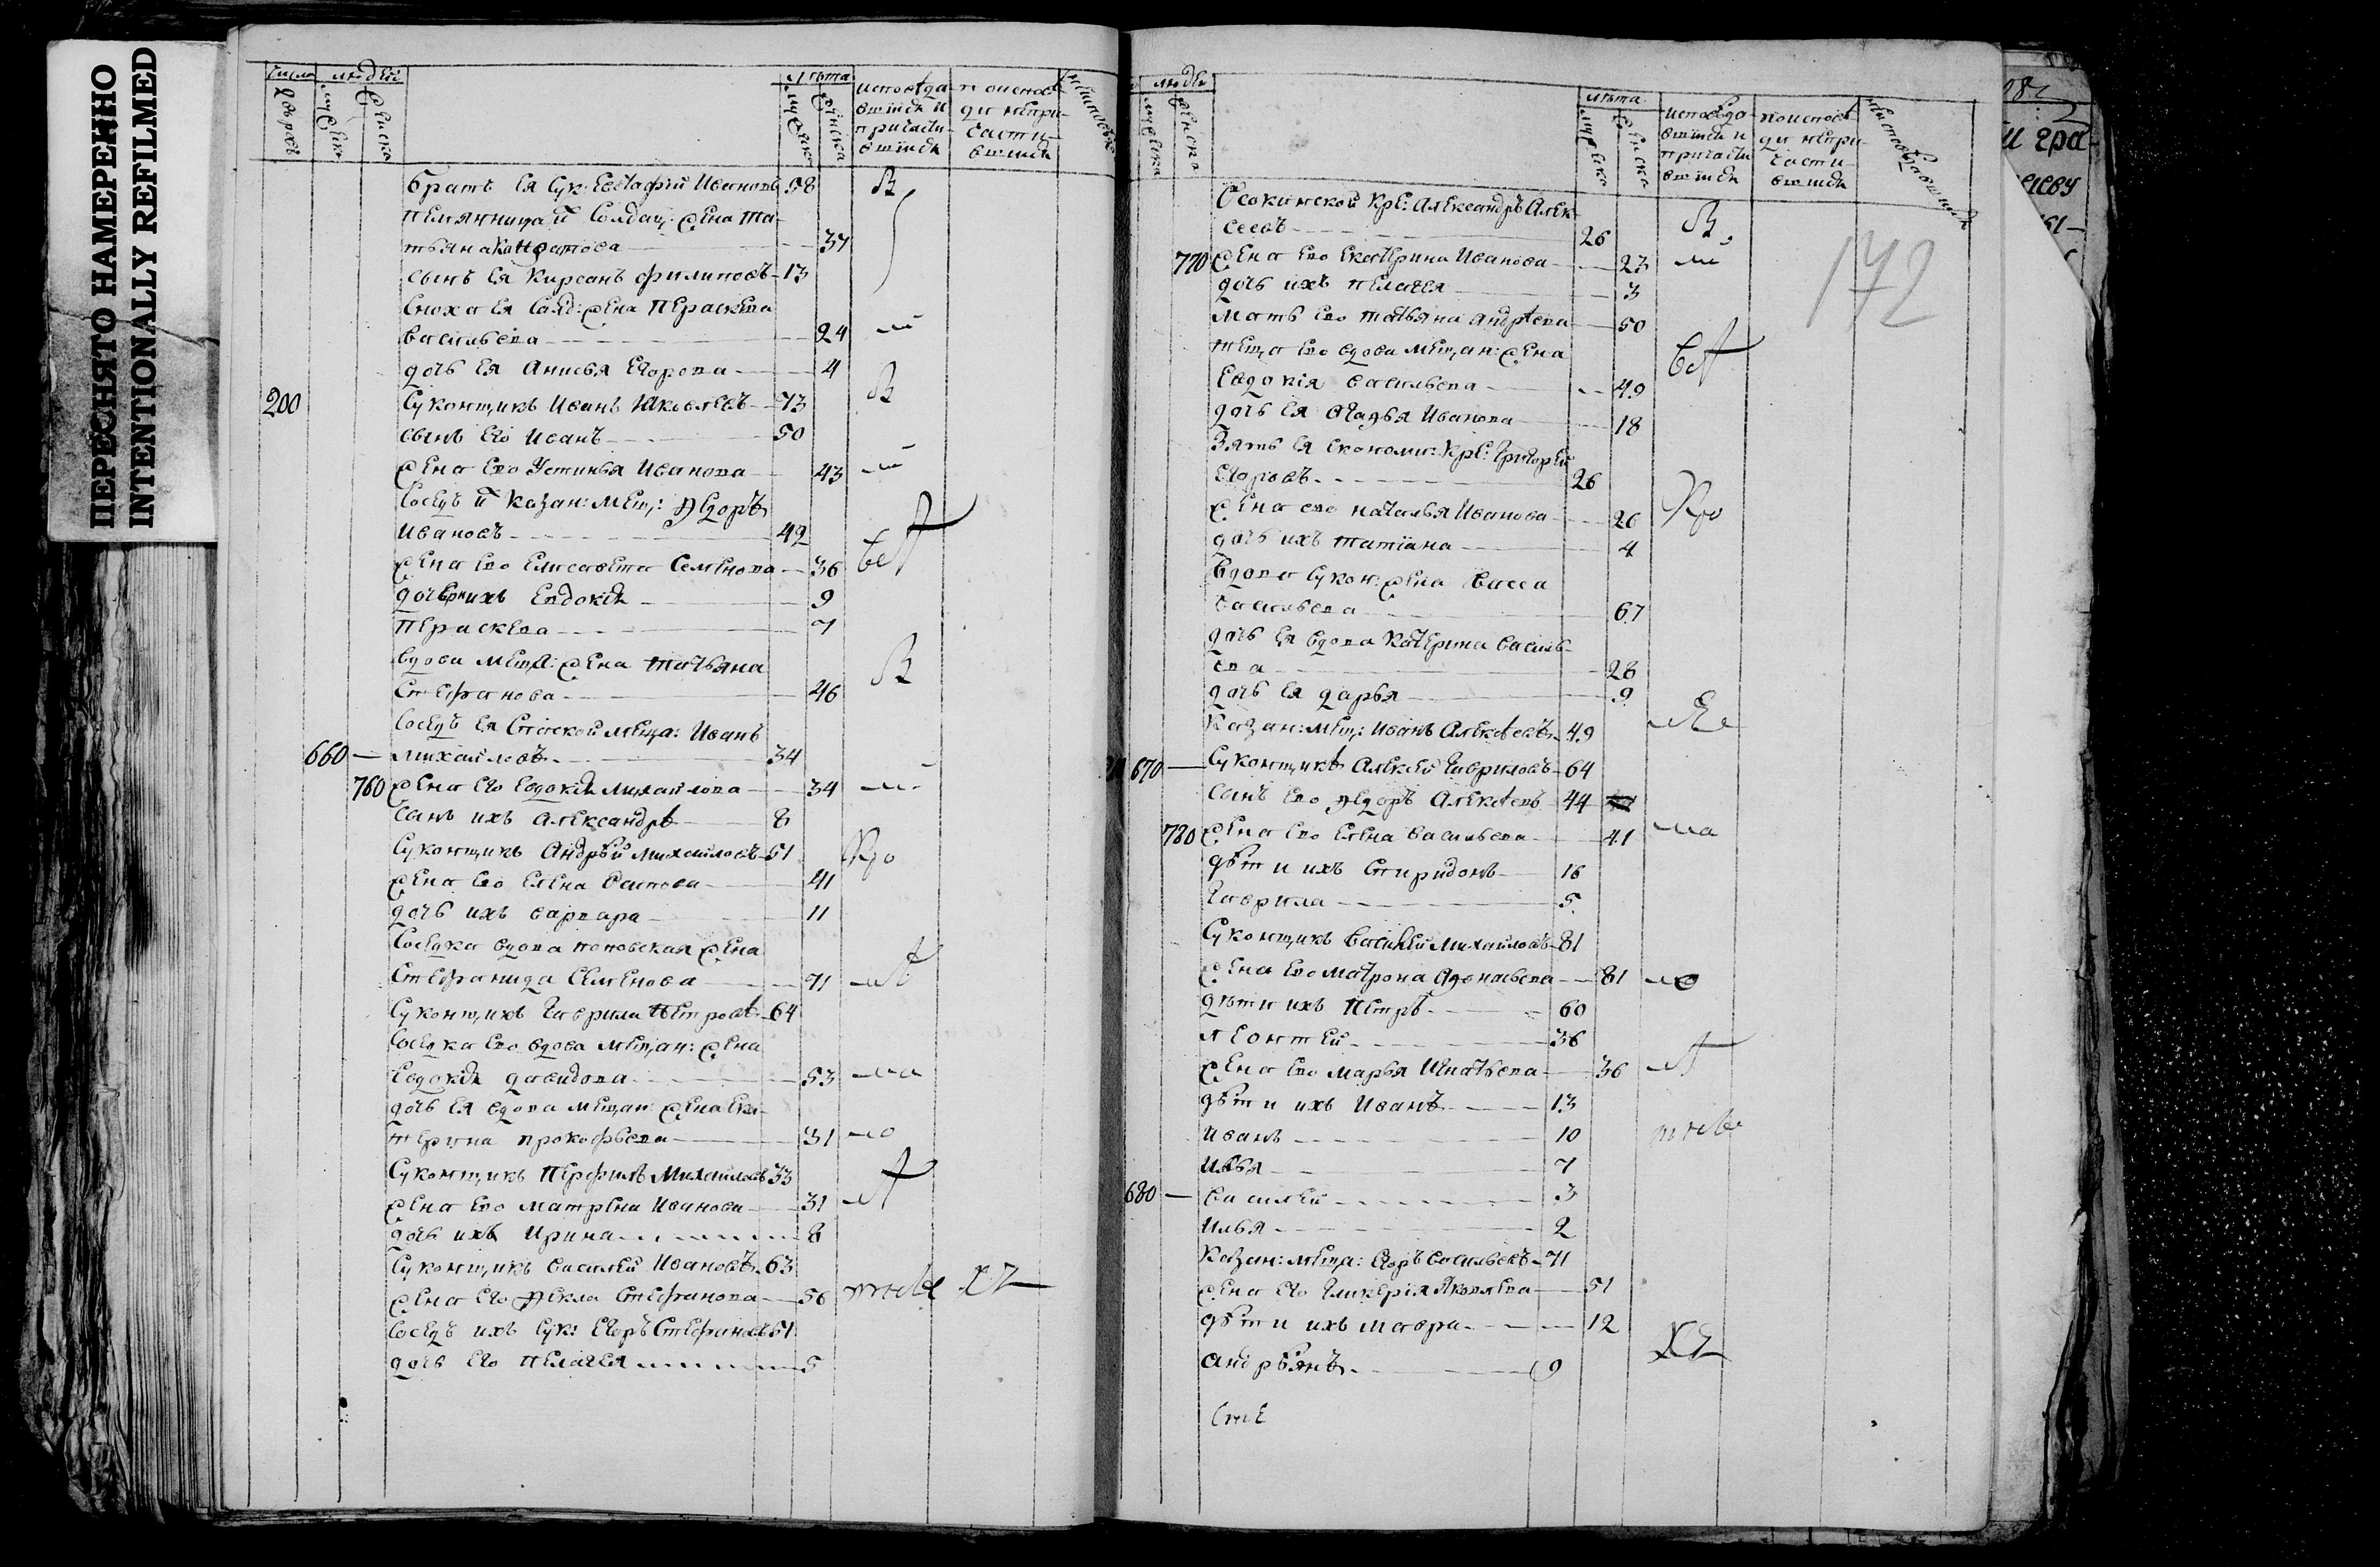 ПЕРЕСНЯТО НАМЕРЕННО
INTENTIONALLY REFILMED
число людей лѣта
дворовъ мужеска женска мужеска женска
исповѣда-
вшихся и
причасти-
вшихся
по исповѣ-
ди непри-
части-
вшихся
братъ ея сук: Евстафій Ивановъ 58
племянница солдац: жена Та-
тьяна 37
сынъ ея Кирсанъ Филиповъ 13
сноха ея солд: жена Пераскева
Васильева 24
дочь ея Анисья Егорова 4
200 Суконщикъ Иванъ Яковлевъ 73
сынъ его Иванъ 50
жена ево Устинья Иванова 43
сосѣдъ Казан: мещ: Ѳедоръ
Ивановъ 42
жена ево Елисавета Семенова 36
дочери ихъ Евдокія 9
Пераскева 7
вдова меща: жена Татьяна
Стефанова 46
сосѣдъ ея меща: Иванъ
660 — Михайловъ 34
760 жена его Евдокія Михайлова 34
сынъ ихъ Александръ 8
Суконщикъ Андрѣй Михайловъ 51
жена ево Елена 41
дочь ихъ Варвара 11
сосѣдка вдова поповская жена
Стефанида Семенова 71
Суконщикъ Гаврила Петровъ 64
сосѣдка ево вдова мещан: жена
Евдокія Давидова 53
дочь ея вдова мещан: жена Ека-
терина Прокофьева 31
Суконщикъ Перфилъ Михайловъ 33
жена ево Матрена Иванова 31
дочь ихъ Ирина 8
Суконщикъ Василей Ивановъ 63
жена его Ѳекла Стефанова 56
сосѣдъ ихъ сук: Егоръ Стефановъ 51
дочь его Пелагея 5
людей лѣта
мужеска женска мужеска женска
исповѣда-
вшихся и
причасти-
вшихся
по исповѣ-
ди непри-
части-
вшихся
172
крес: Александръ Алек-
сеевъ 26
770 жена ево Екатерина Иванова 23
дочь ихъ Пелагея 3
мать ево Татьяна Андрѣева 50
теща ево вдова мещан: жена
Евдокія Васильева 49
дочь ея Агафья Иванова 18
зять ея економи: крес: Григорей
Егоровъ 26
жена ево Наталья Иванова 26
дочь ихъ Татіана 4
вдова сукон: жена Васса
Васильева 67
дочь ея вдова Катерина Василь-
ева 28
дочь ея Дарья 9
Казан: мещ: Иванъ Алексѣевъ 49
670 — Суконщикъ Алексѣй Гавриловъ 64
сынъ ево Ѳедоръ Алексѣевъ 44
780 жена ево Елена Васильева 41
дѣти ихъ Спиридонъ 16
Гаврила 5
Суконщикъ Василей Михайловъ 81
жена ево Матрона Афонасьева 81
дѣти ихъ Петръ 60
Леонтей 36
жена ево Марья Игнатьева 36
дѣти ихъ Иванъ 13
Иванъ 10
Илья 7
680 — Василей 3
Илья 2
Казан: меща: Егоръ Васильевъ 71
жена его Гликерія Яковлева 51
дѣти ихъ Мавра 12
Андрѣянъ 9